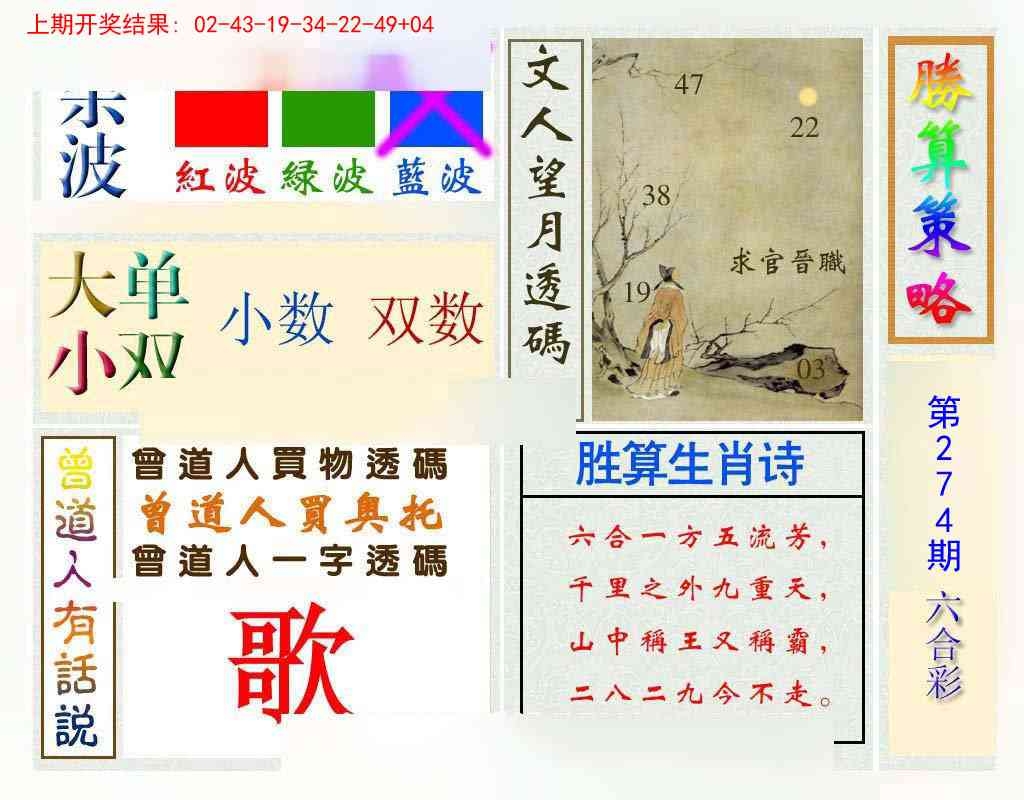 上期开奖结果: 02-43-19-34-22-49+04
波
紅波 绿波 藍波
大单
小双
小数 双数
文人望月透碼
47
22
38
求官晉職
19
03
勝算策略
第274期
六合彩
曾道人有話説
曾道人買物透碼
曾道人買奥托
曾道人一字透碼
歌
胜算生肖诗
六合一方五流芳，
千里之外九重天，
山中稱王又稱霸，
二八二九今不走。